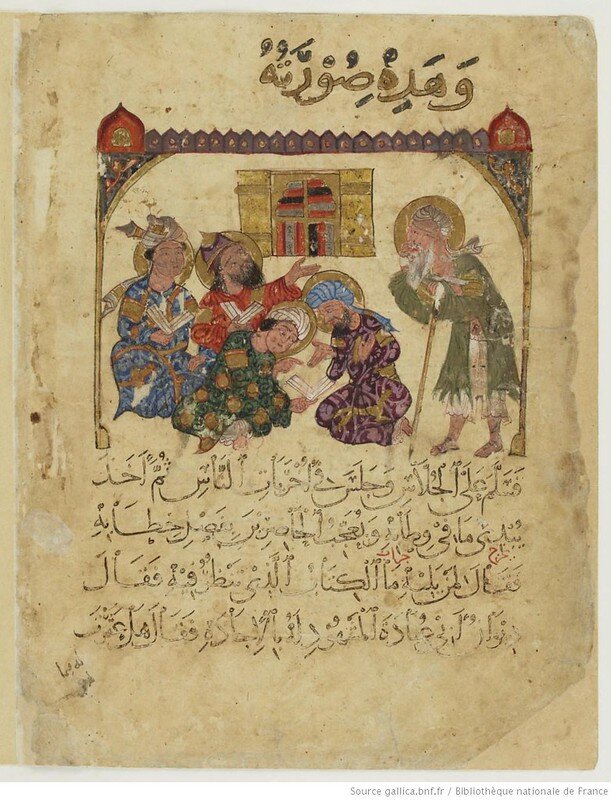 وَهَذِهِ صُوْرَتُهُ
فسلم على الجلاس وجلس في أخريات الناس ثم أخذ
يبدي ما في وطابه ويعجب الحاضرين بفصل خطابه
فقال لمن يليه ما الكتاب الذي تنظر فيه فقال
ديوان أبي عبادة المشهود له بالإجادة فقال هل عثرت
له فيما
Source gallica.bnf.fr / Bibliothèque nationale de France